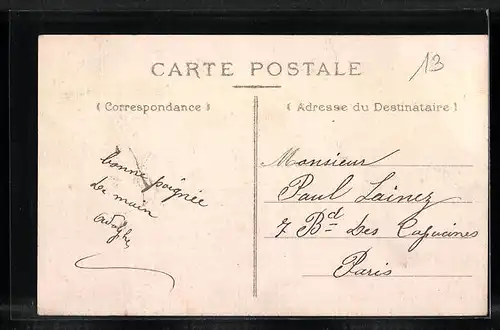 CARTE POSTALE
13
( Correspondance )
( Adresse du Destinataire )
bonne poignée
de main
Adolphe
Monsieur
Paul Lainez
7 Bd des Capucines
Paris